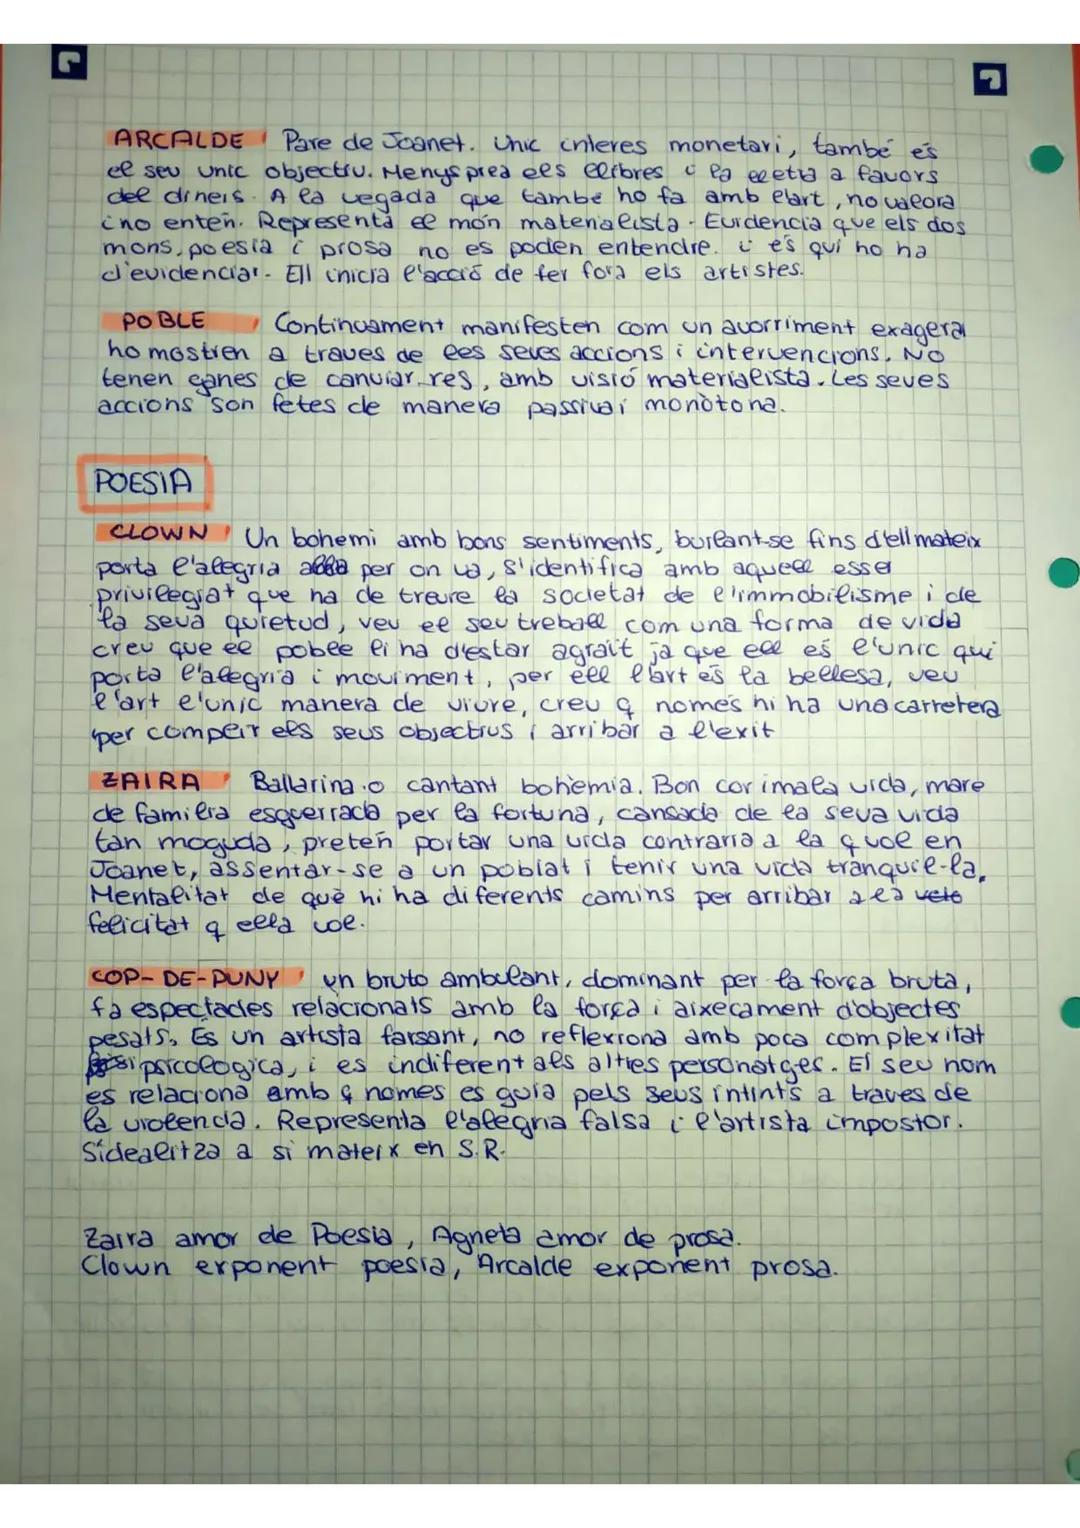 ARCALDE Pare de Joanet. Unic interes monetari, també és
el seu unic objectiu. Menysprea els llibres i la lletra a favors
del diners. A la vegada que també ho fa amb elart, no valora
i no enten. Representa el món materialista. Evidencia que els dos
mons, poesia i prosa no es poden entendre. i és qui ho ha
d'evidenciar. Ell inicia l'acció de fer fora els artistes.
POBLE Continuament manifesten com un avorriment exagerat
ho mostren a traves de les seves accions i intervencions. No
tenen ganes de canviar res, amb visió materialista. Les seves
accions son fetes de manera passiva i monòtona.
POESIA
CLOWN Un bohemi amb bons sentiments, burlant-se fins d'ell mateix
porta l'alegria per on va, s'identifica amb aquell esser
privilegiat que ha de treure la societat de l'immobilisme i de
la seva quietud, veu el seu treball com una forma de vida
creu que el poble li ha d'estar agraït ja que ell és l'unic qui
porta l'alegria i moviment, per ell l'art és la bellesa, veu
l'art l'unic manera de viure, creu q només hi ha una carretera
per complir els seus objectius i arribar a l'exit
ZAIRA Ballarina o cantant bohèmia. Bon cor i mala vida, mare
de familia esguerrada per la fortuna, cansada de la seva vida
tan moguda, preten portar una vida contraria a la que vol en
Joanet, assentar-se a un poblat i tenir una vida tranquil-la.
Mentalitat de què hi ha diferents camins per arribar a la
felicitat q ella vol.
COP-DE-PUNY un bruto ambulant, dominant per la força bruta,
fa espectacles relacionats amb la força i aixecament d'objectes
pesats. És un artista farsant, no reflexiona amb poca complexitat
psicologica, i es indiferent als altres personatges. El seu nom
es relaciona amb q nomes es guia pels seus intints a traves de
la violencia. Representa l'alegria falsa i l'artista impostor.
S'idealitza a si mateix en S.R.
Zaira amor de Poesia, Agneta amor de prosa.
Clown exponent poesia, Arcalde exponent prosa.